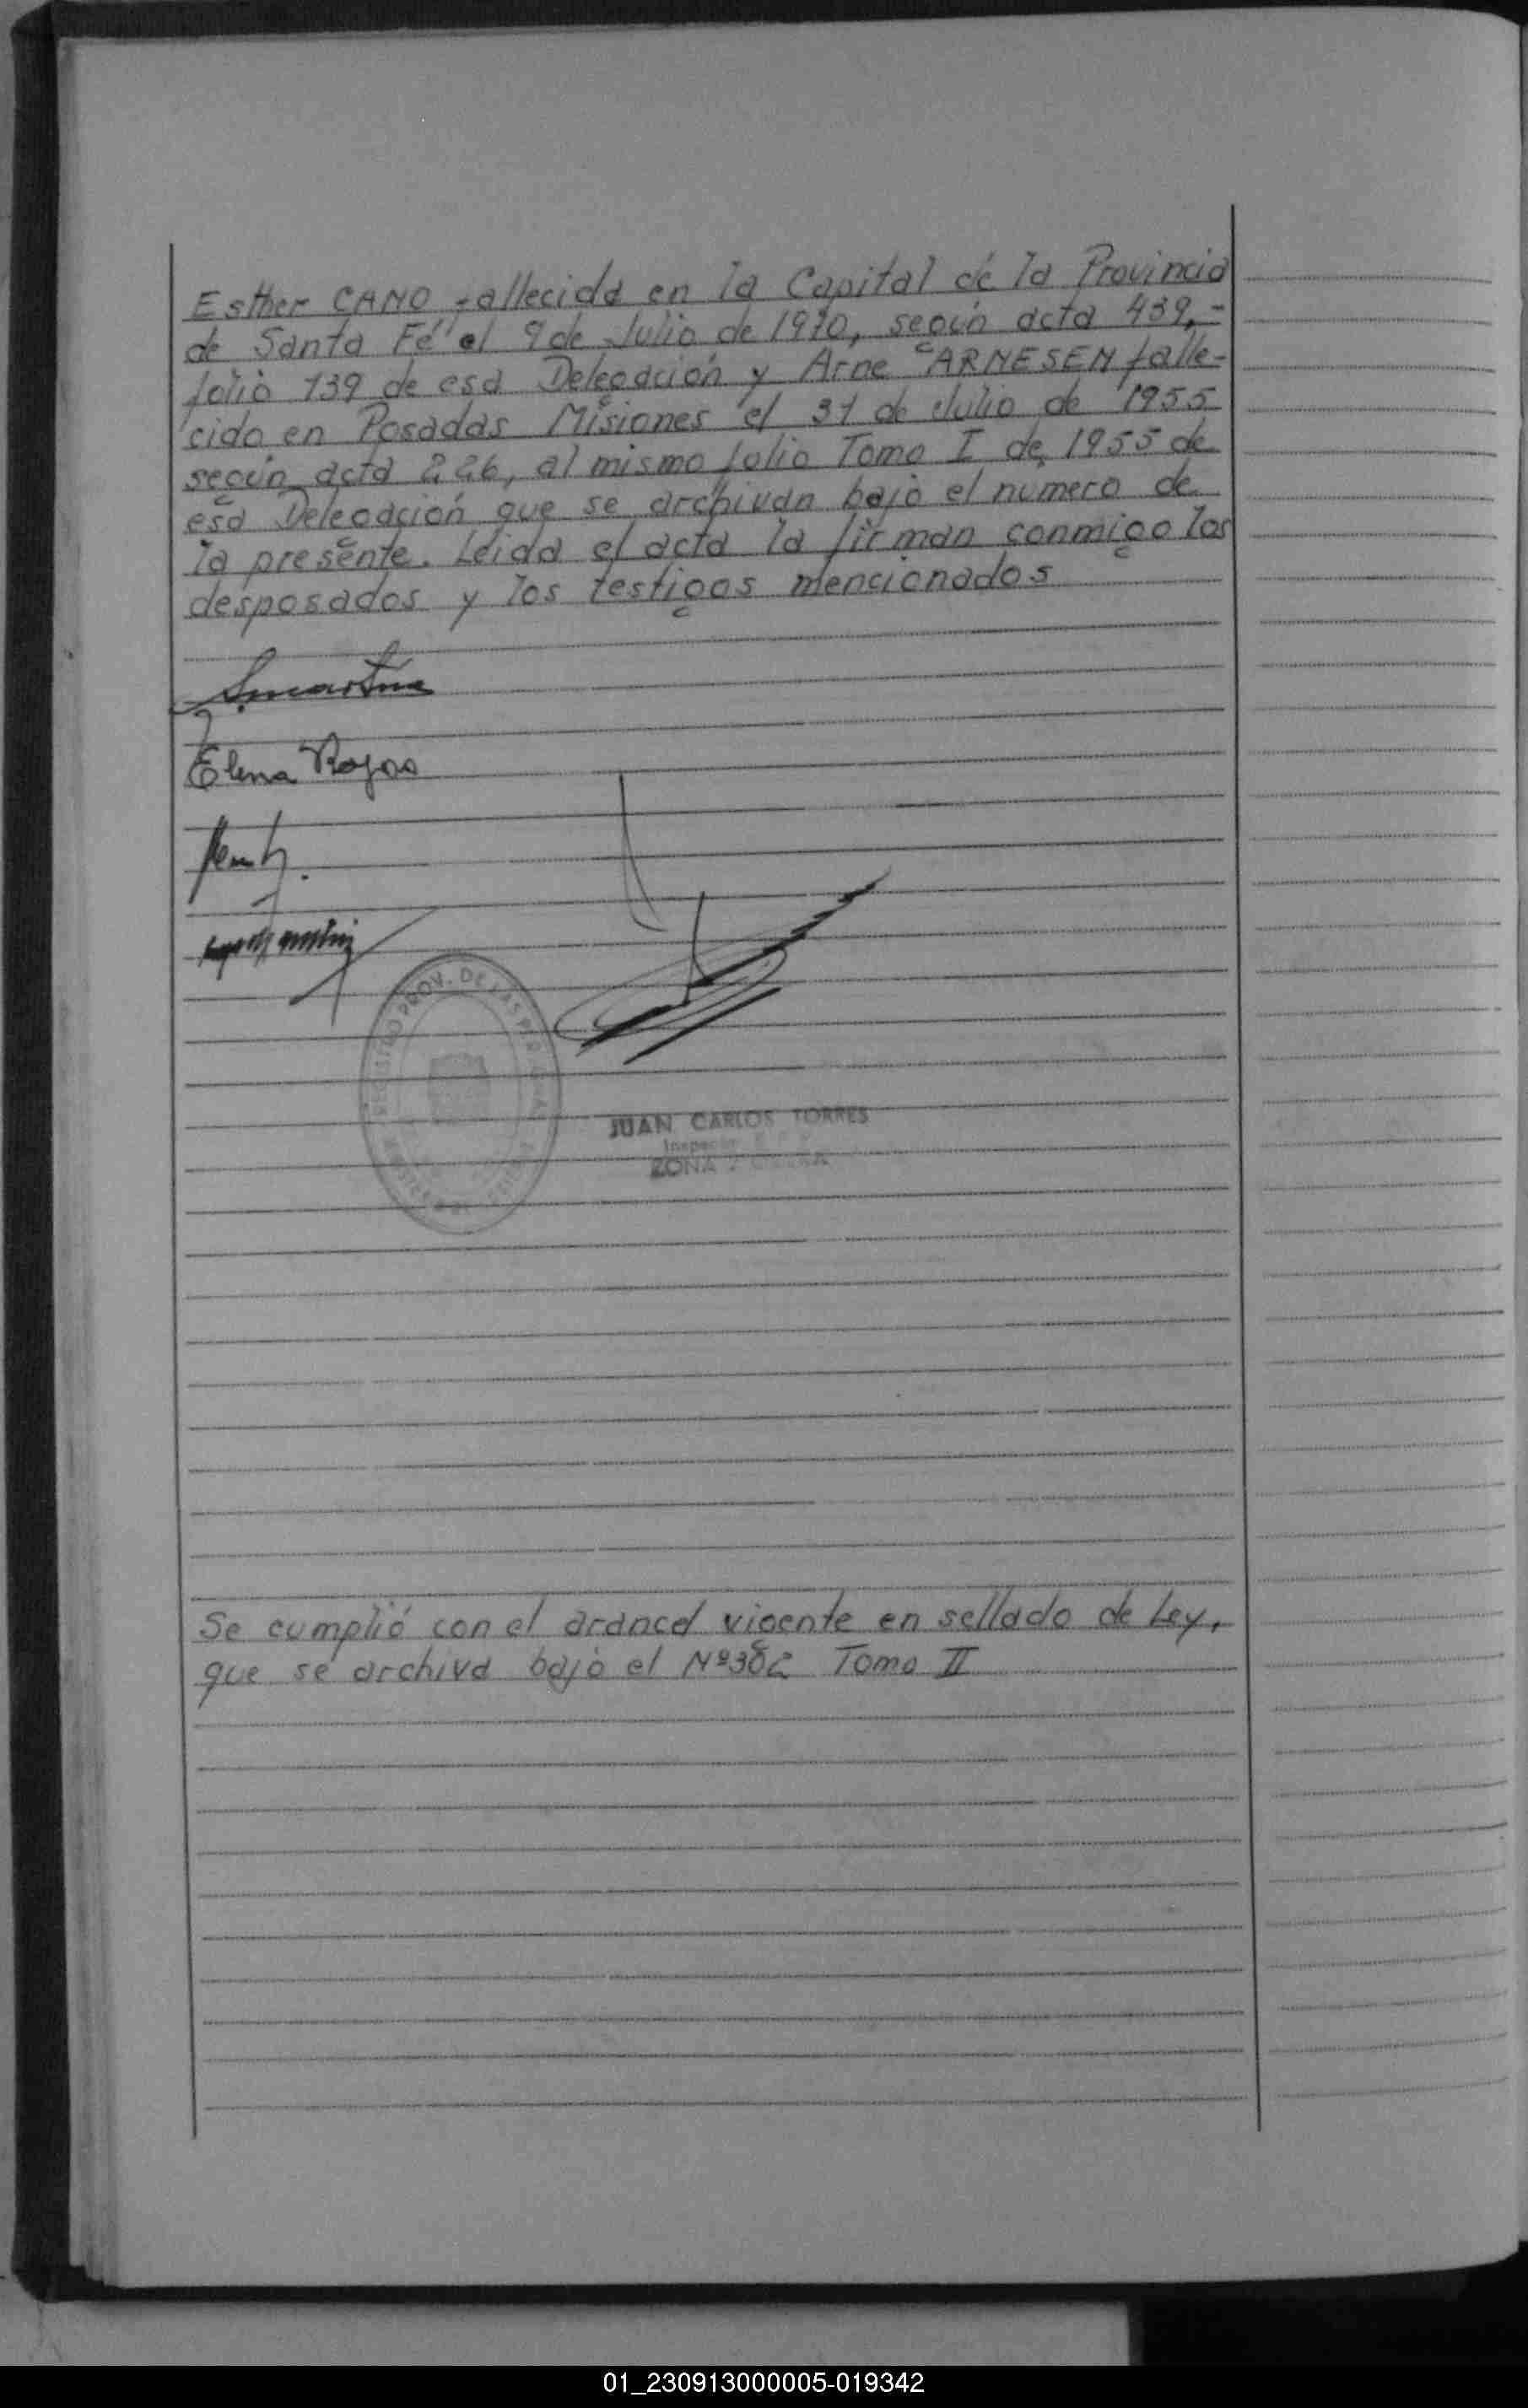 Esther CANO fallecida en la Capital de la Provincia
de Santa Fé el 9 de Julio de 1970, según acta 439,-
folio 139 de esa Delegación y Arne ARNESEN falle-
cido en Posadas Misiones el 31 de Julio de 1955
según acta 226, al mismo folio Tomo I de 1955 de
esa Delegación que se archivan bajo el numero de
la presente. Leida el acta la firman conmigo los
desposados y los testigos mencionados
Elena Rojas
PROV. DE LAS
JUAN CARLOS TORRES
ZONA
Se cumplió con el arancel vigente en sellado de Ley,
que se archiva bajo el Nº 382 Tomo II
01_230913000005-019342